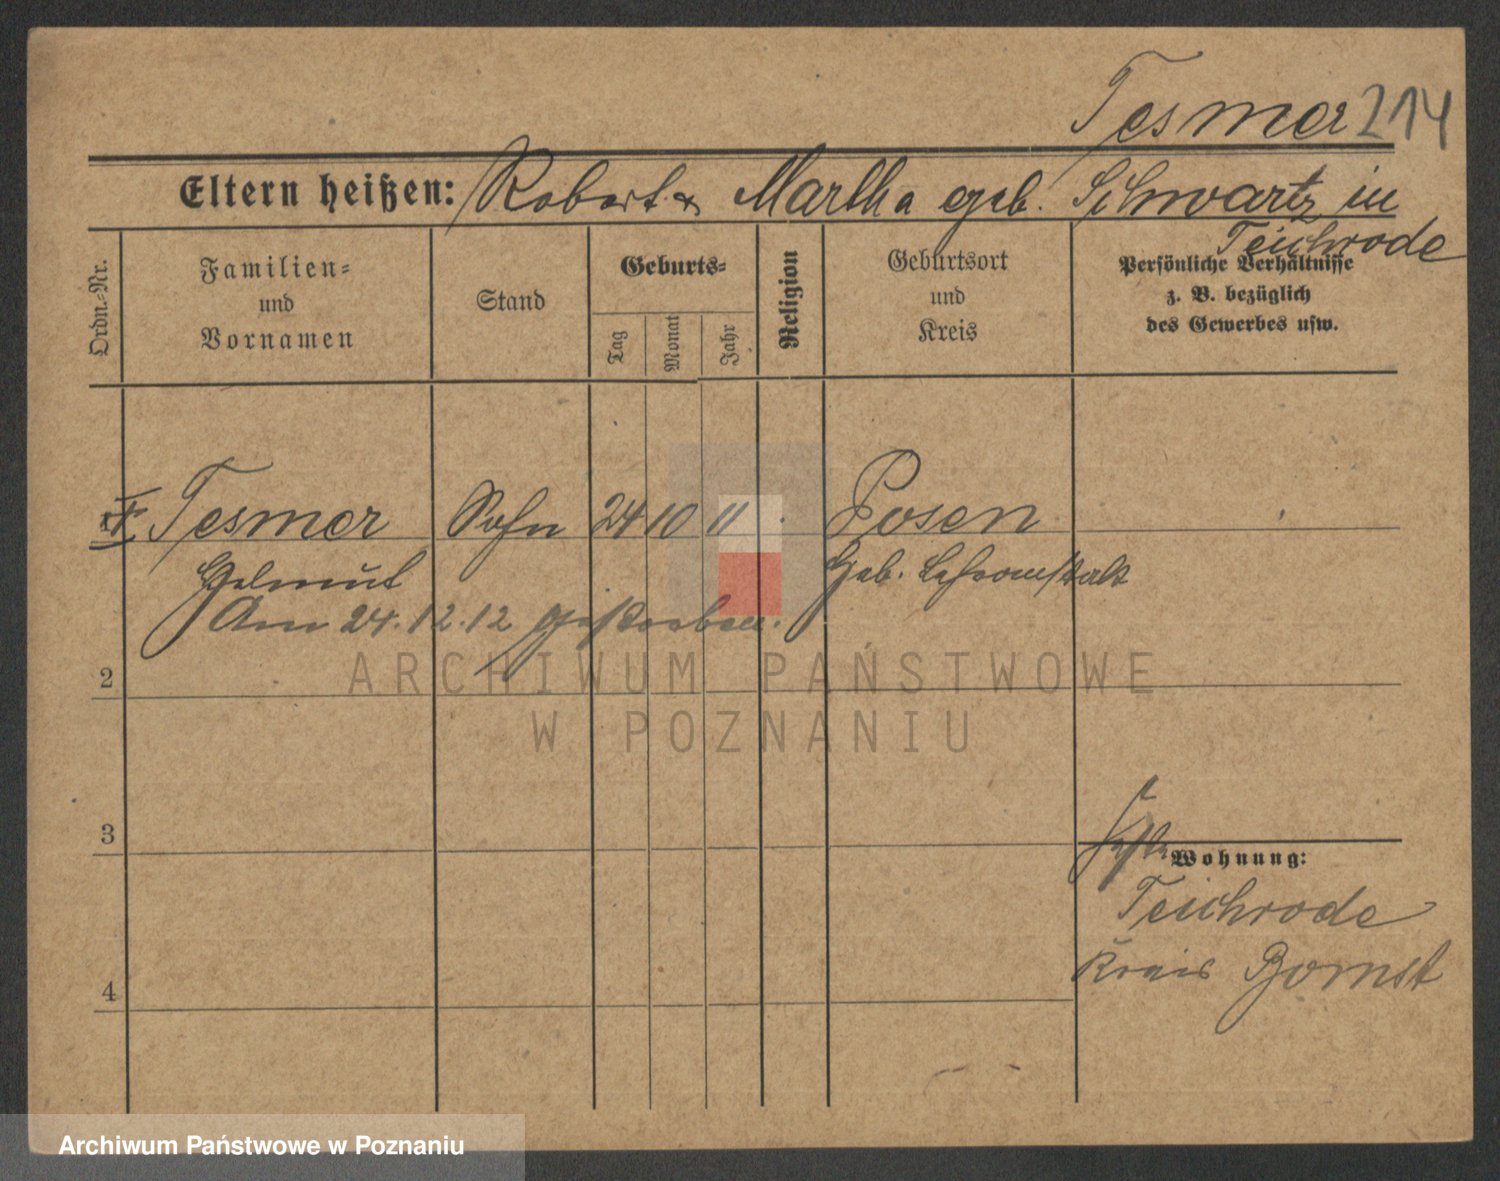 Tesmer 214
Eltern heißen: Robert & Martha geb. Schwartz in
Teichrode
Ordn.-Nr.
Familien-
und
Vornamen
Stand
Geburts-
Tag
Monat
Jahr
Religion
Geburtsort
und
Kreis
Persönliche Verhältnisse
z. B. bezüglich
des Gewerbes usw.
Tesmer Sohn 24 10 11 Posen
Helmut Heb. Lehranstalt
Am 24.12.12 gestorben.
2
ARCHIWUM PAŃSTWOWE
W POZNANIU
3
Wohnung:
Teichrode
Kreis Bomst
4
Archiwum Państwowe w Poznaniu